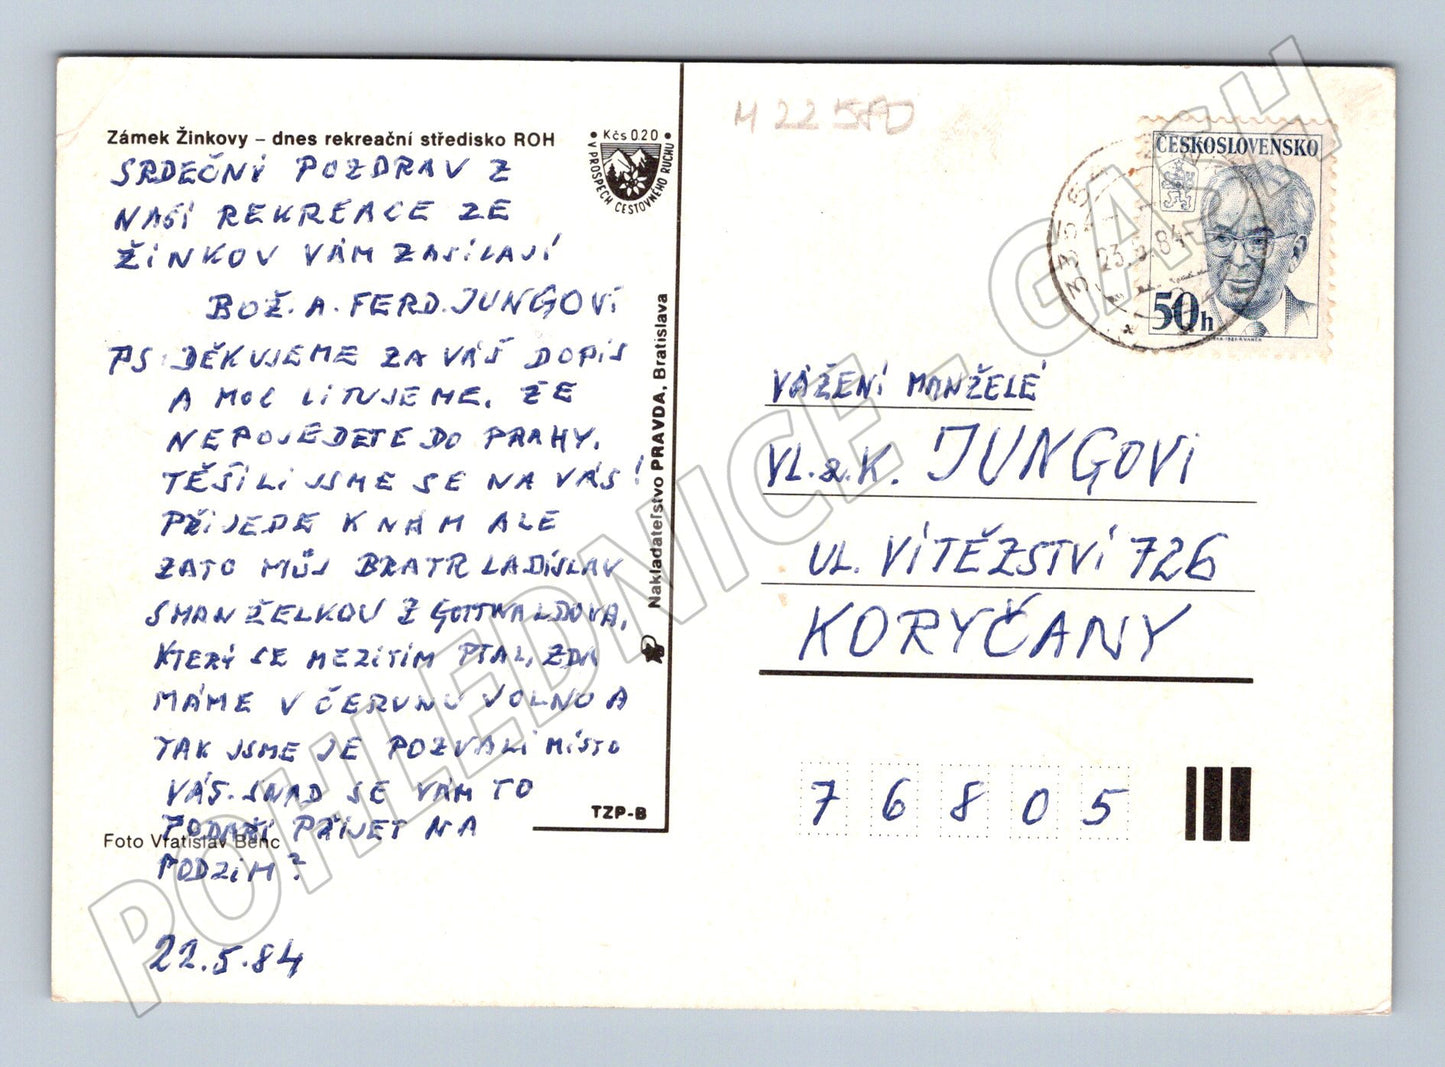 Zámek Žinkovy – dnes rekreační středisko ROH
SRDEČNÝ POZDRAV Z
NAŠÍ REKREACE ZE
ŽINKOV VÁM ZASÍLAJÍ
BOŽ. A. FERD. JUNGOVI
PS: DĚKUJEME ZA VÁŠ DOPIS
A MOC LITUJEME, ŽE
NEPOJEDETE DO PRAHY.
TĚŠILI JSME SE NA VÁS!
PŘIJEDE K NÁM ALE
ZATO MŮJ BRATR LADISLAV
S MANŽELKOU Z GOTTWALDOVA,
KTERÝ SE MEZITÍM PTAL, ZDA
MÁME V ČERVNU VOLNO A
TAK JSME JE POZVALI MÍSTO
VÁS. SNAD SE VÁM TO
PODAŘÍ PŘIJET NA
PODZIM?
Foto Vratislav Benc
22.5.84
• Kčs 0.20 •
V PROSPĚCH CESTOVNÉHO RUCHU
Nakladatelstvo PRAVDA, Bratislava
TZP-B
M 22 5AD
ČESKOSLOVENSKO
50h
23.5.84
VÁŽENÍ MANŽELÉ
VL. & K. JUNGOVI
UL. VÍTĚZSTVÍ 726
KORYČANY
76805
POHLEDNICE - GASH